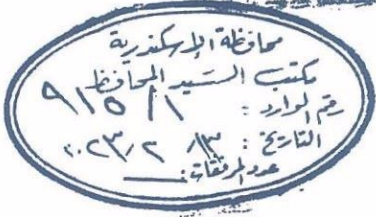 محافظة الإسكندرية
مكتب السيد المحافظ
رقم الوارد : ٩١٥٨/١
التاريخ : ١٣/ ٢ /٢٠٢٣
عدد المرفقات :